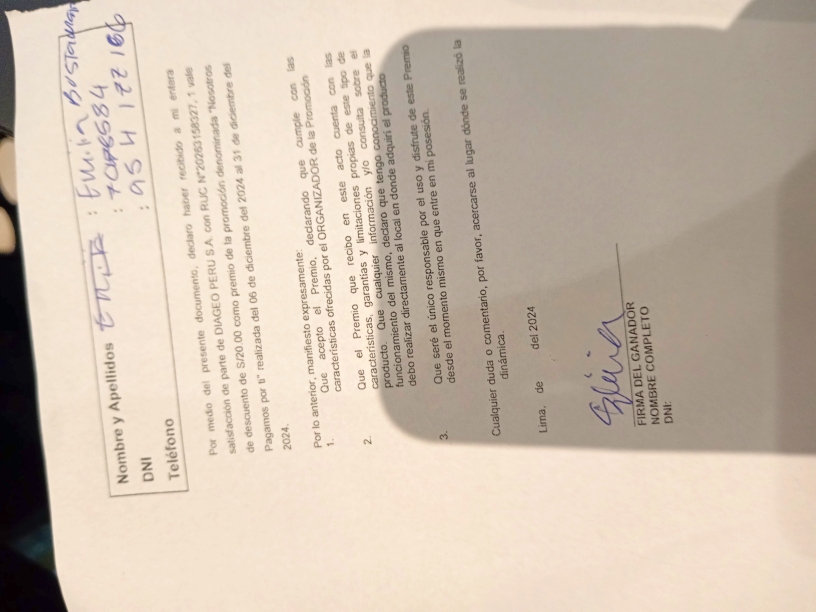 Nombre y Apellidos : Emilia
DNI :
Teléfono : 954 122 166
Por medio del presente documento, declaro haber recibido a mi entera
satisfacción de parte de DIAGEO PERU S.A. con RUC N°20263158327, 1 vale
de descuento de S/20.00 como premio de la promoción denominada "Nosotros
Pagamos por ti" realizada del 06 de diciembre del 2024 al 31 de diciembre del
2024.
Por lo anterior, manifiesto expresamente:
1. Que acepto el Premio, declarando que cumple con las
características ofrecidas por el ORGANIZADOR de la Promoción
2. Que el Premio que recibo en este acto cuenta con las
características, garantías y limitaciones propias de este tipo de
producto. Que cualquier información y/o consulta sobre el
funcionamiento del mismo, declaro que tengo conocimiento que la
debo realizar directamente al local en donde adquirí el producto
3. Que seré el único responsable por el uso y disfrute de este Premio
desde el momento mismo en que entre en mi posesión.
Cualquier duda o comentario, por favor, acercarse al lugar dónde se realizó la
dinámica.
Lima, de del 2024
FIRMA DEL GANADOR
NOMBRE COMPLETO
DNI: